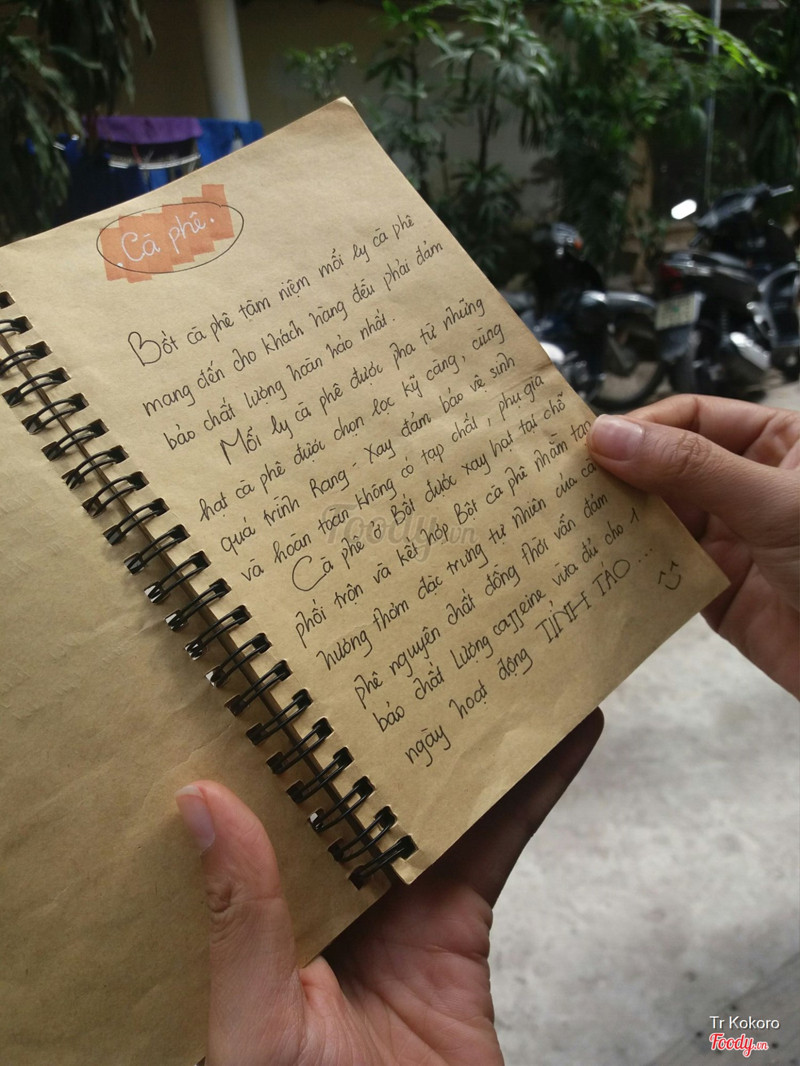 . Cà phê .
Bốt cà phê tâm niệm mỗi ly cà phê
mang đến cho khách hàng đều phải đảm
bảo chất lượng hoàn hảo nhất.
Mỗi ly cà phê được pha từ những
hạt cà phê được chọn lọc kỹ càng, cùng
quá trình Rang - Xay đảm bảo vệ sinh
và hoàn toàn không có tạp chất, phụ gia
Cà phê ở Bốt được xay hạt tại chỗ
phối trộn và kết hợp Bốt cà phê nhằm tạo
hương thơm đặc trưng tự nhiên của cà
phê nguyên chất đồng thời vẫn đảm
bảo chất lượng caffeine vừa đủ cho 1
ngày hoạt động TỈNH TÁO ...
Foody.vn
Tr Kokoro
Foody.vn